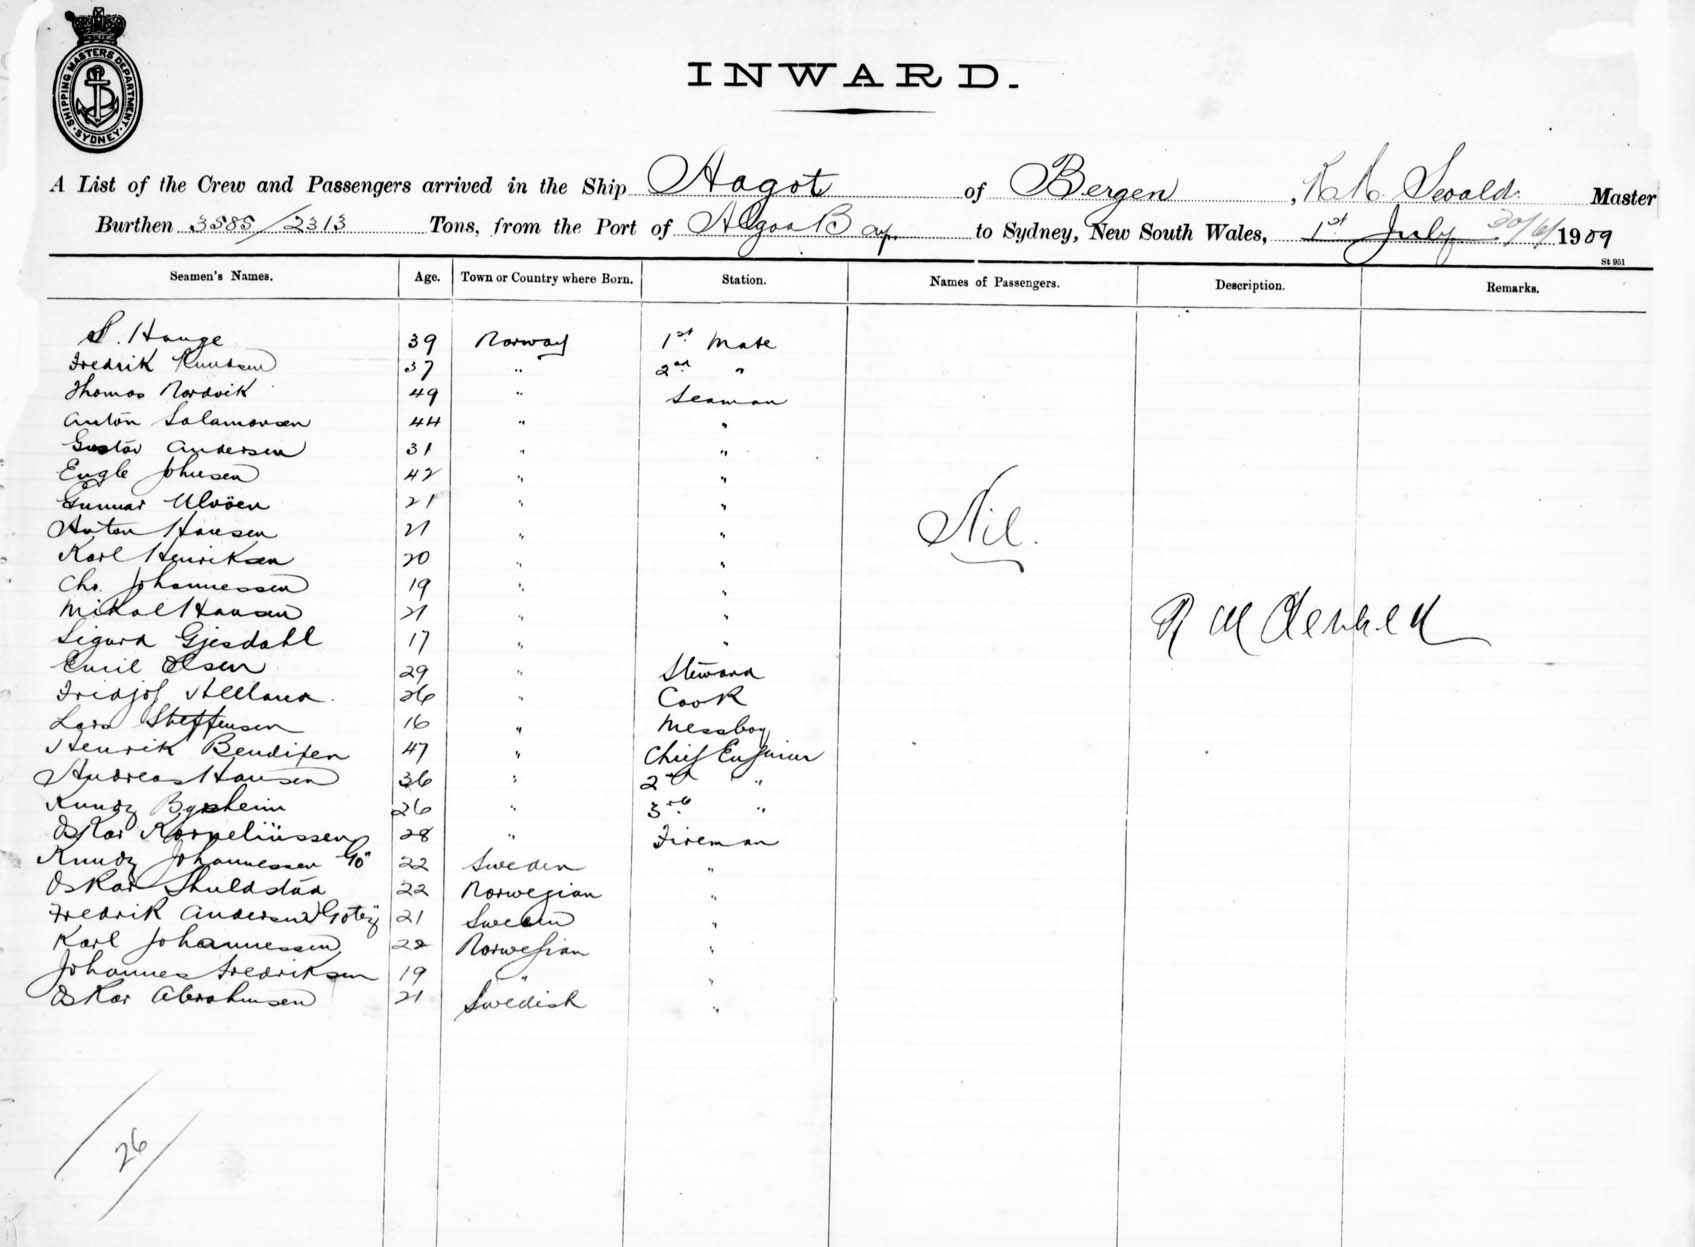 SHIPPING MASTERS DEPARTMENT
SYDNEY
INWARD.
A List of the Crew and Passengers arrived in the Ship Aagot of Bergen, Master
Burthen 3585/2313 Tons, from the Port of Algoa Bay to Sydney, New South Wales, 1st July 30/6/1909
St 951
Seamen's Names. Age. Town or Country where Born. Station. Names of Passengers. Description. Remarks.
S. Hauge 39 Norway 1st Mate
Fredrik Knudsen 37 " 2nd "
Thomas Nordvik 49 " Seaman
Anton Salamonsen 44 " "
Gustav Andersen 31 " "
Engle Johnsen 42 " "
Gunnar Ulvöen 21 " "
Nil.
Anton Hansen 21 " "
Karl Henriksen 20 " "
Chr. Johannessen 19 " "
Mikal Hansen 21 " "
Sigurd Gjesdahl 17 " "
Emil Olsen 29 " Steward
Fridjof 26 " Cook
Lars Steffensen 16 " Messboy
Henrik Bendixen 47 " Chief Engineer
Andreas Hansen 36 " 2nd "
Knudz 26 " 3rd "
Oskar Korneliussen 28 " Fireman
Knudz Johannessen 22 Sweden "
Oskar Skuldstad 22 Norwegian "
Fredrik Andersen 21 Sweden "
Karl Johannessen 22 Norwegian "
Johannes Fredriksen 19 " "
Oskar Abrahmsen 21 Swedish "
26